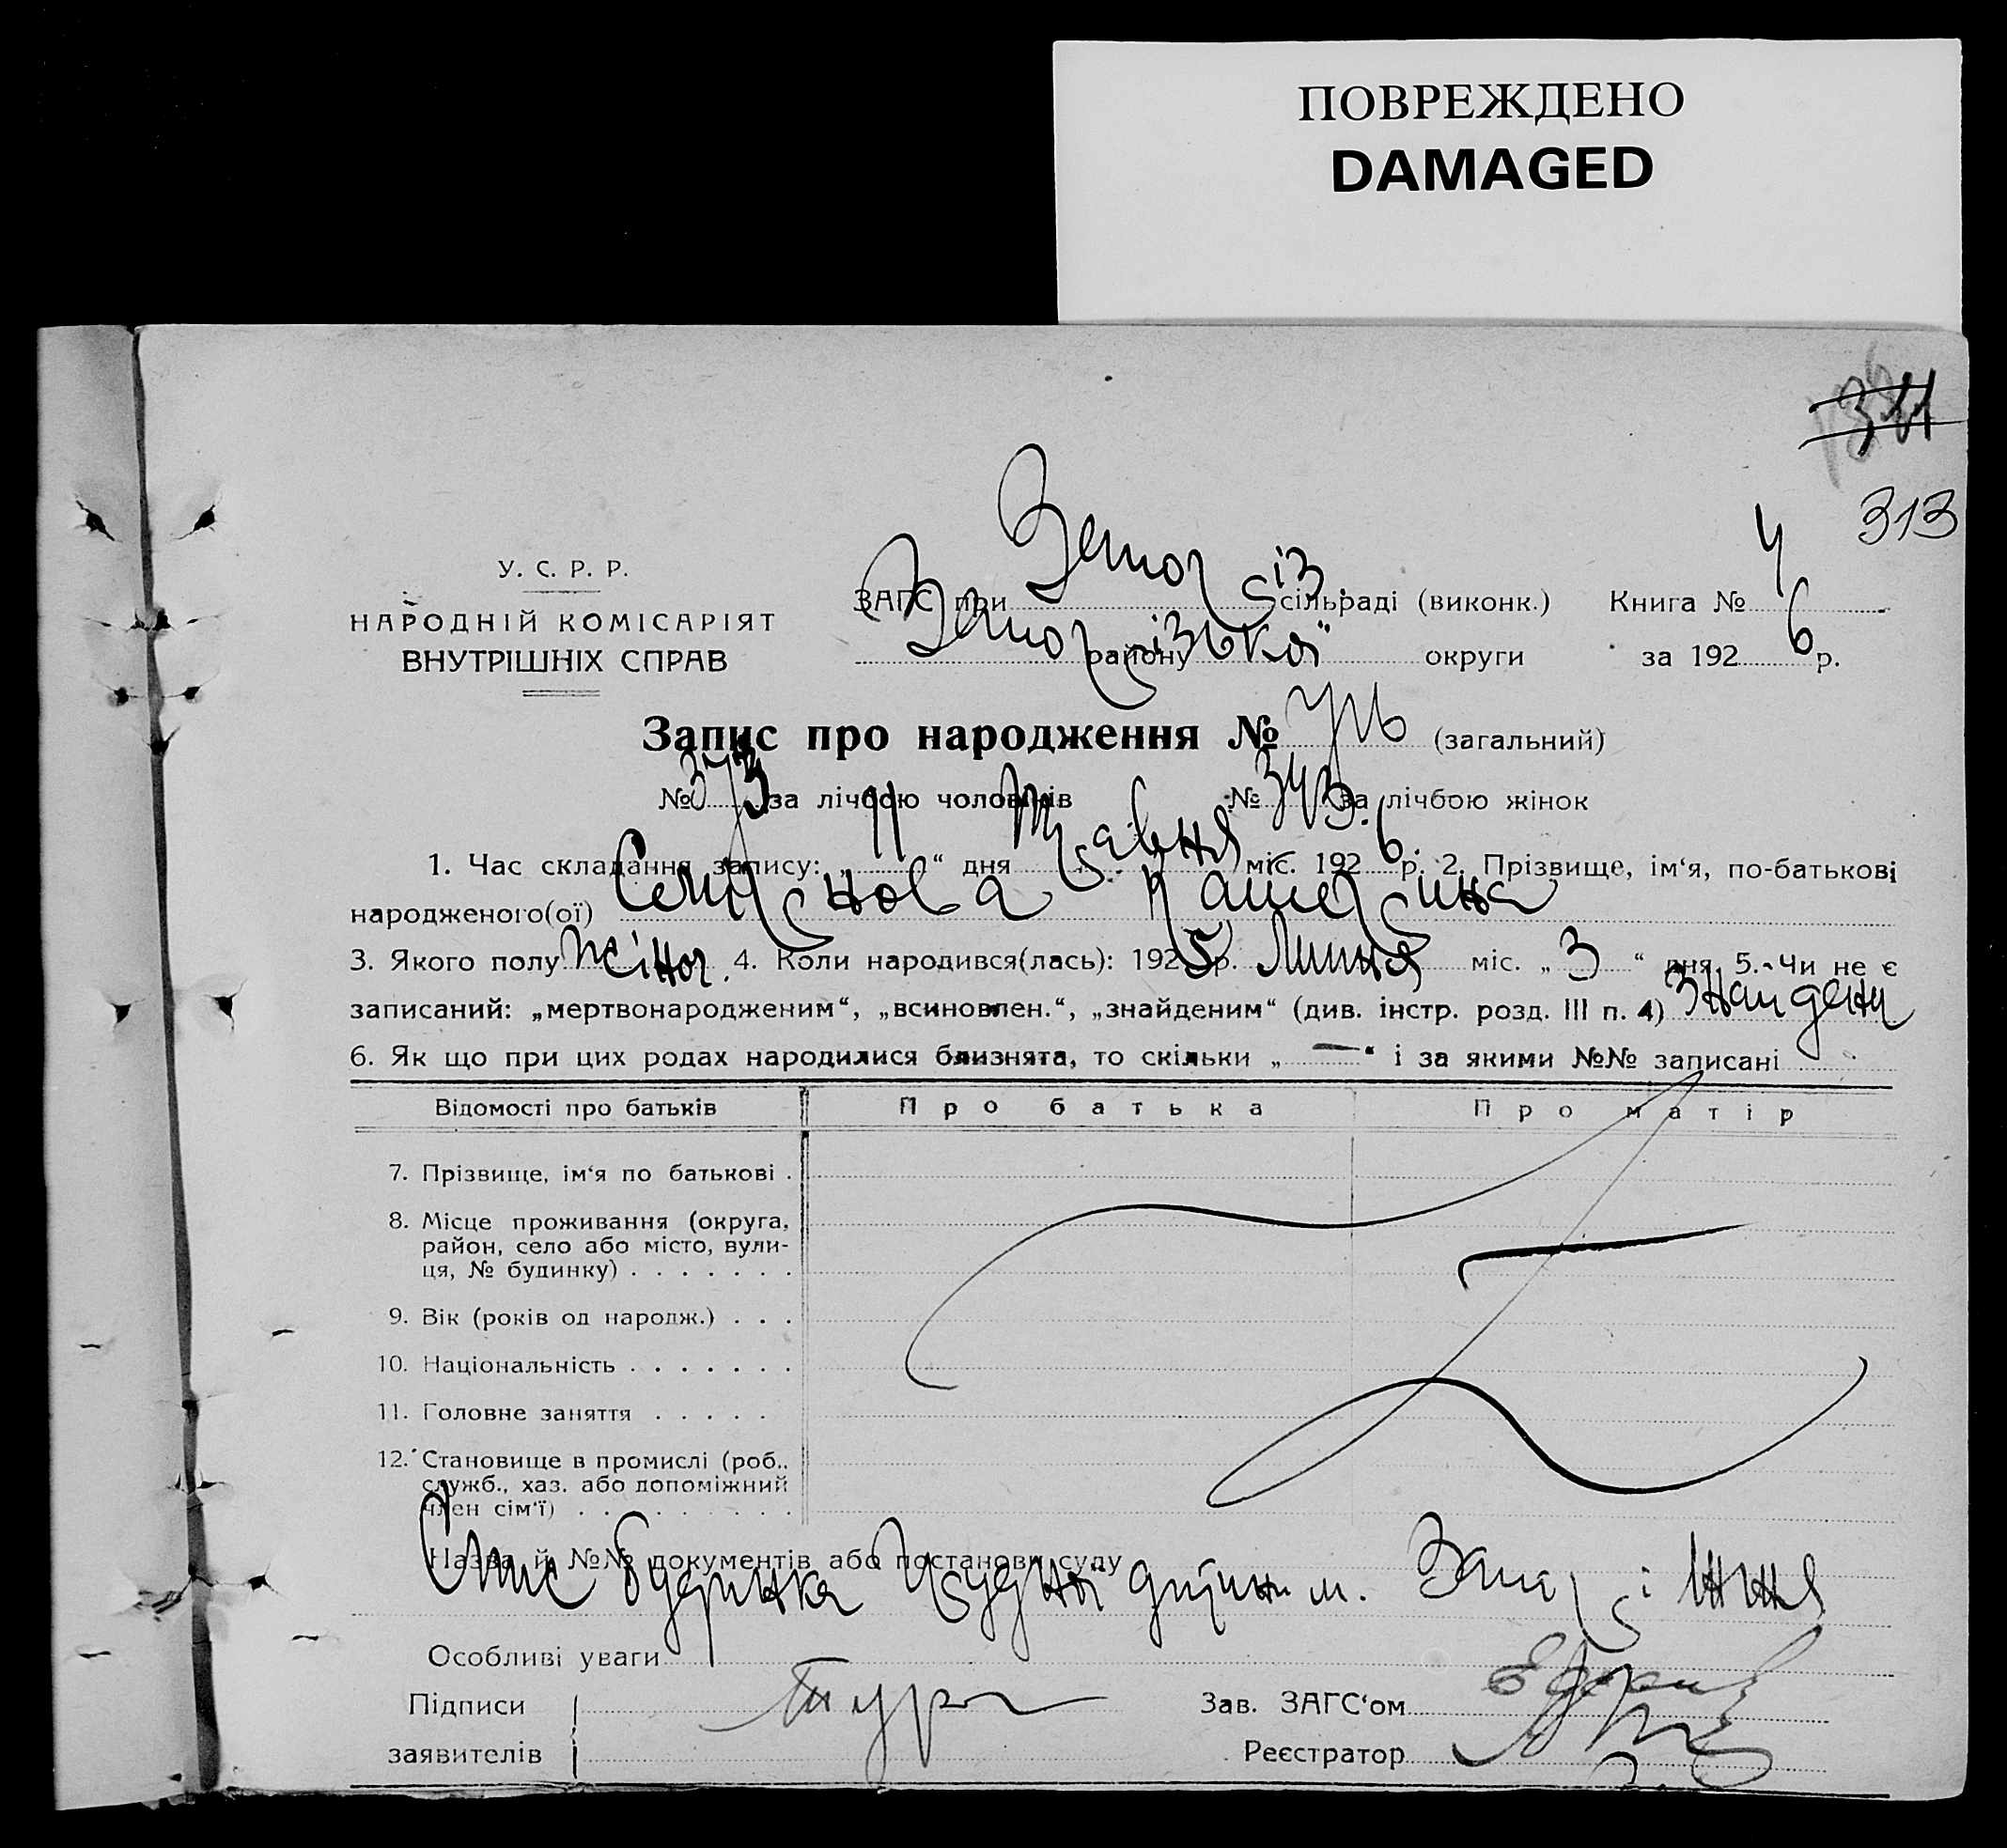 ПОВРЕЖДЕНО
DAMAGED
313
У. С. Р. Р.
НАРОДНІЙ КОМІСАРІЯТ
ВНУТРІШНІХ СПРАВ
ЗАГС при Запоріз. сільраді (виконк.) Книга № 4
району Запорізької округи за 1926 р.
Запис про народження № (загальний)
№ 373 за лічбою чоловіків № 343 за лічбою жінок
1. Час складання запису: „11“ дня Травня міс. 1926 р. 2. Прізвище, ім‘я, по-батькові
народженого(ої) Катерина
3. Якого полу жіноч. 4. Коли народився(лась): 1925 р. Липня міс. „3“ дня 5. Чи не є
записаний: „мертвонародженим“, „всиновлен.“, „знайденим“ (див. інстр. розд. III п. 4) Знайдени
6. Як що при цих родах народилися близнята, то скільки „—“ і за якими №№ записані
Відомості про батьків Про батька Про матір
7. Прізвище, ім‘я по батькові .
8. Місце проживання (округа,
район, село або місто, вули-
ця, № будинку) . . . . . . .
9. Вік (років од народж.) . . .
10. Національність . . . . . . .
11. Головне заняття . . . . .
12. Становище в промислі (роб.,
служб., хаз. або допоміжний
член сім‘ї) . . . . . . . . .
Назва й №№ документів або постанови суду
Спис будинка дитини м. Запоріжжя
Особливі уваги
Підписи
заявителів
Зав. ЗАГС‘ом
Реєстратор